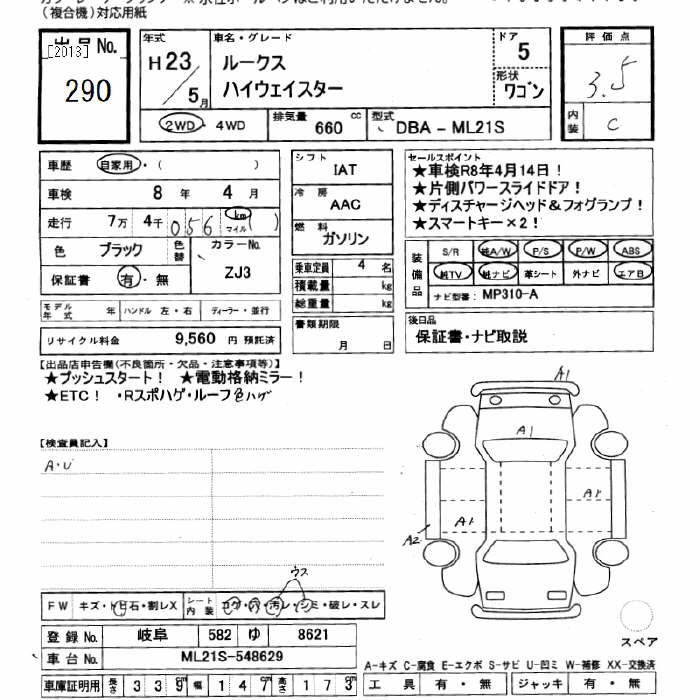 （複合機）対応用紙
出品No.
[2013]
290
年式
H23／5月
車名・グレード
ルークス
ハイウェイスター
ドア
5
形状
ワゴン
2WD・4WD
排気量 660 cc
型式 DBA－ML21S
評価点
3.5
内装
C
車歴 自家用・（ ）
車検 8 年 4 月
走行 7万 4千 056 km マイル（ ）
色 ブラック 色替 カラーNo.
保証書 有・無 ZJ3
シフト IAT
冷房 AAC
燃料 ガソリン
乗車定員 4 名
積載量 kg
総重量 kg
セールスポイント
★車検R8年4月14日！
★片側パワースライドドア！
★ディスチャージヘッド＆フォグランプ！
★スマートキー×2！
装備品
S/R 純A/W P/S P/W ABS
純TV 純ナビ 革シート 外ナビ エアB
ナビ型番： MP310-A
モデル年式 年 ハンドル 左・右 ディーラー・並行
リサイクル料金 9,560 円 預託済
書類期限
月 日
後日品
保証書・ナビ取説
【出品店申告欄（不良箇所・欠品・注意事項等）】
★プッシュスタート！ ★電動格納ミラー！
★ETC！ ・Rスポハゲ・ルーフ色ハゲ
【検査員記入】
A・U
A1
A1
A1
A1
A2
ウス
FW キズ・トビ石・割レX
シート内装 コゲ・穴・汚レ・シミ・破レ・スレ
登録No. 岐阜 582 ゆ 8621
車台No. ML21S-548629
車庫証明用 長さ 339cm 幅 147cm 高さ 173cm
スペア
A-キズ C-腐食 E-エクボ S-サビ U-凹ミ W-補修 XX-交換済
工具 有・無 ジャッキ 有・無